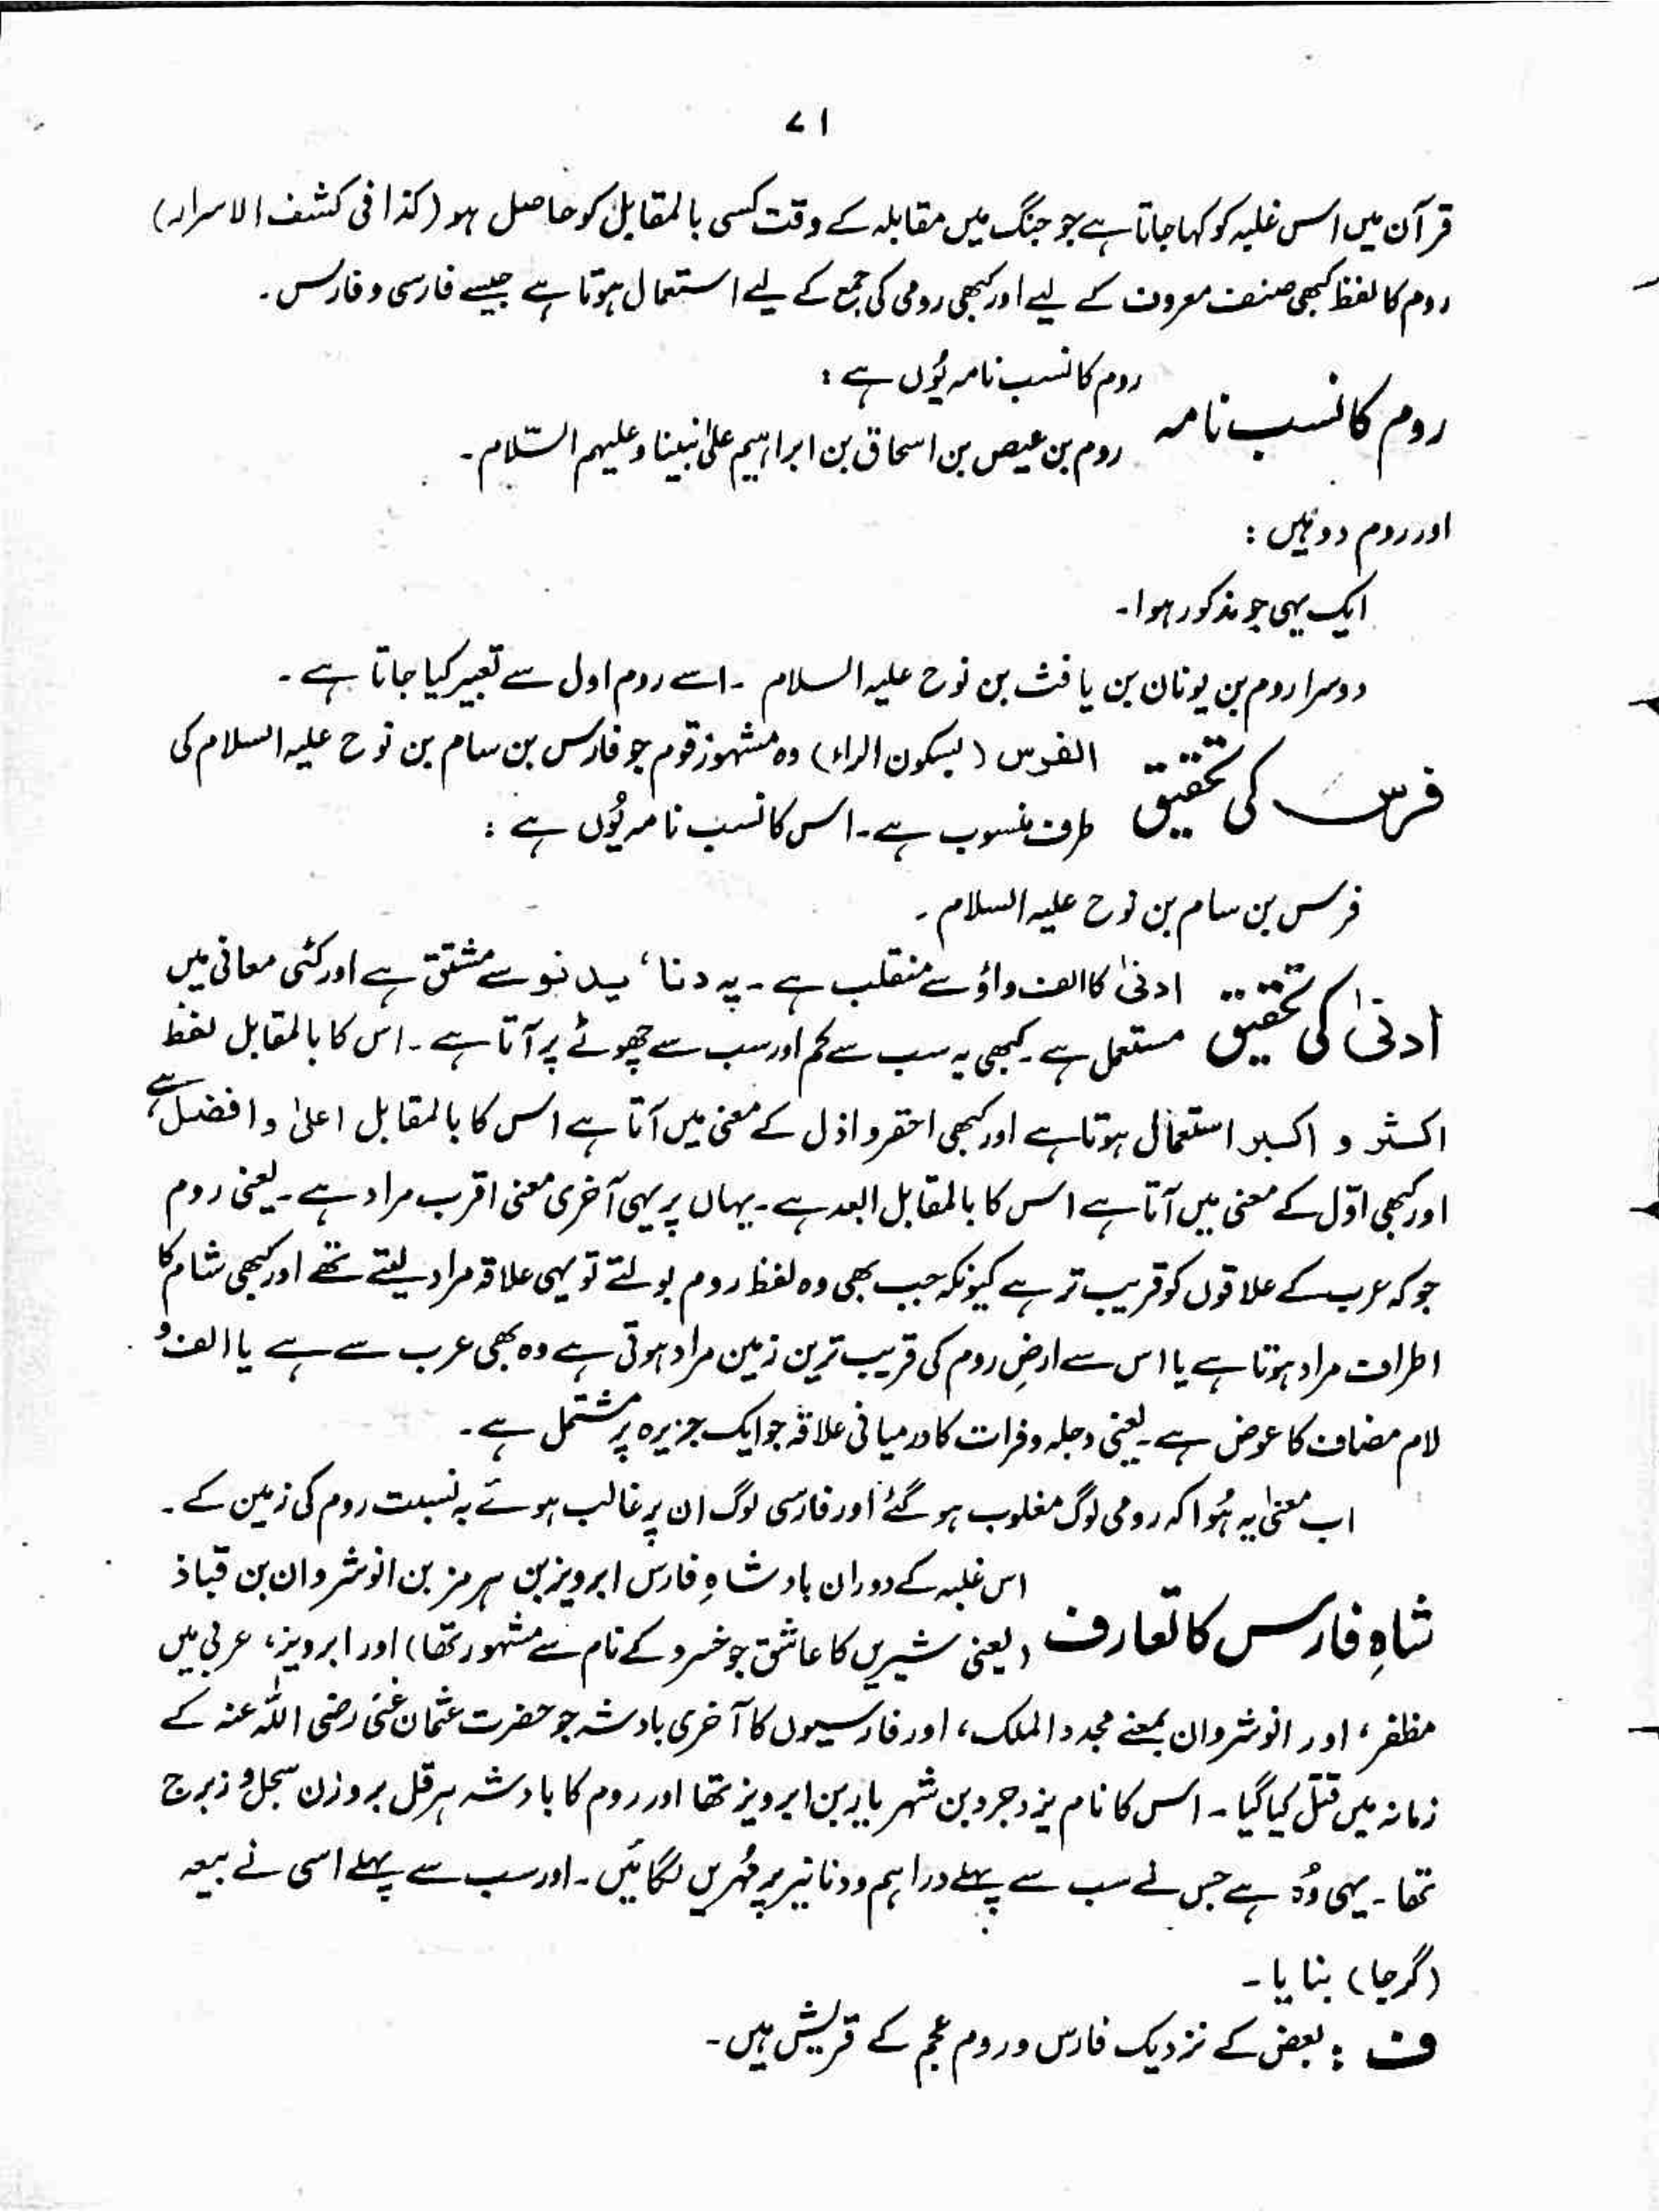 ۷۱
قرآن میں اس غلبہ کو کہا جاتا ہے جو جنگ میں مقابلہ کے وقت کسی بالمقابل کو حاصل ہو (کذا فی کشف الاسرار)
روم کا لفظ کبھی صنف معروف کے لیے اور کبھی رومی کی جمع کے لیے استعمال ہوتا ہے جیسے فارسی و فارس۔
روم کا نسب نامہ
روم کا نسب نامہ یُوں ہے :
روم بن عیص بن اسحاق بن ابراہیم علیٰ نبینا و علیہم السّلام۔
اور روم دو ہیں :
ایک یہی جو مذکور ہوا۔
دوسرا روم بن یونان بن یافث بن نوح علیہ السلام ۔ اسے روم اول سے تعبیر کیا جاتا ہے۔
فرس کی تحقیق
الفرس (بسکون الراء) وہ مشہور قوم جو فارس بن سام بن نوح علیہ السلام کی
طرف منسوب ہے۔ اس کا نسب نامہ یُوں ہے :
فرس بن سام بن نوح علیہ السلام ۔
ادنیٰ کی تحقیق
ادنیٰ کا الف واؤ سے منقلب ہے ۔ یہ دنا، یدنو سے مشتق ہے اور کئی معانی میں
مستعمل ہے ۔ کبھی یہ سب سے کم اور سب سے چھوٹے پر آتا ہے ۔ اس کا بالمقابل لفظ
اکثر و اکبر استعمال ہوتا ہے اور کبھی احقر و اذل کے معنی میں آتا ہے اس کا بالمقابل اعلیٰ و افضل ہے،
اور کبھی اوّل کے معنی میں آتا ہے اس کا بالمقابل ابعد ہے ۔ یہاں پر یہی آخری معنی اقرب مراد ہے ۔ یعنی روم
جو کہ عرب کے علاقوں کو قریب تر ہے کیونکہ جب بھی وہ لفظ روم بولتے تو یہی علاقہ مراد لیتے تھے اور کبھی شام کا
اطراف مراد ہوتا ہے یا اس سے ارضِ روم کی قریب ترین زمین مراد ہوتی ہے وہ بھی عرب سے ہے یا الف و
لام مضاف کا عوض ہے ۔ یعنی دجلہ و فرات کا درمیانی علاقہ جو ایک جزیرہ پر مشتمل ہے ۔
اب معنیٰ یہ ہُوا کہ رومی لوگ مغلوب ہو گئے اور فارسی لوگ ان پر غالب ہوئے بہ نسبت روم کی زمین کے ۔
شاہِ فارس کا تعارف
اس غلبہ کے دوران بادشاہِ فارس ابرویز بن ہرمز بن انوشروان بن قباذ
(یعنی شیریں کا عاشق جو خسرو کے نام سے مشہور تھا) اور ابرویز، عربی میں
مظفر، اور انوشروان بمعنے مجدد الملک، اور فارسیوں کا آخری بادشہ جو حضرت عثمان غنی رضی اللہ عنہ کے
زمانہ میں قتل کیا گیا ۔ اس کا نام یزدجرد بن شہریار بن ابرویز تھا اور روم کا بادشہ ہرقل بروزن سجل و زبرج
تھا ۔ یہی وُہ ہے جس نے سب سے پہلے دراہم و دنانیر پر مُہریں لگائیں ۔ اور سب سے پہلے اسی نے بیعہ
(گرجا) بنایا ۔
ف : بعض کے نزدیک فارس و روم عجم کے قریش ہیں۔